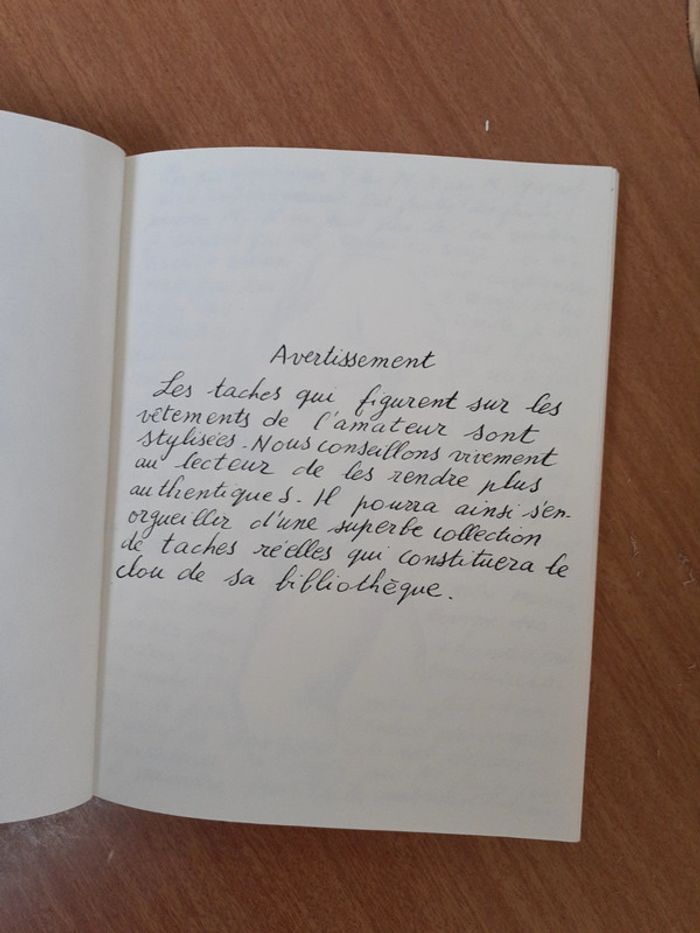 Avertissement
Les taches qui figurent sur les
vêtements de l'amateur sont
stylisées. Nous conseillons vivement
au lecteur de les rendre plus
authentiques. Il pourra ainsi s'en-
orgueillir d'une superbe collection
de taches réelles qui constituera le
clou de sa bibliothèque.